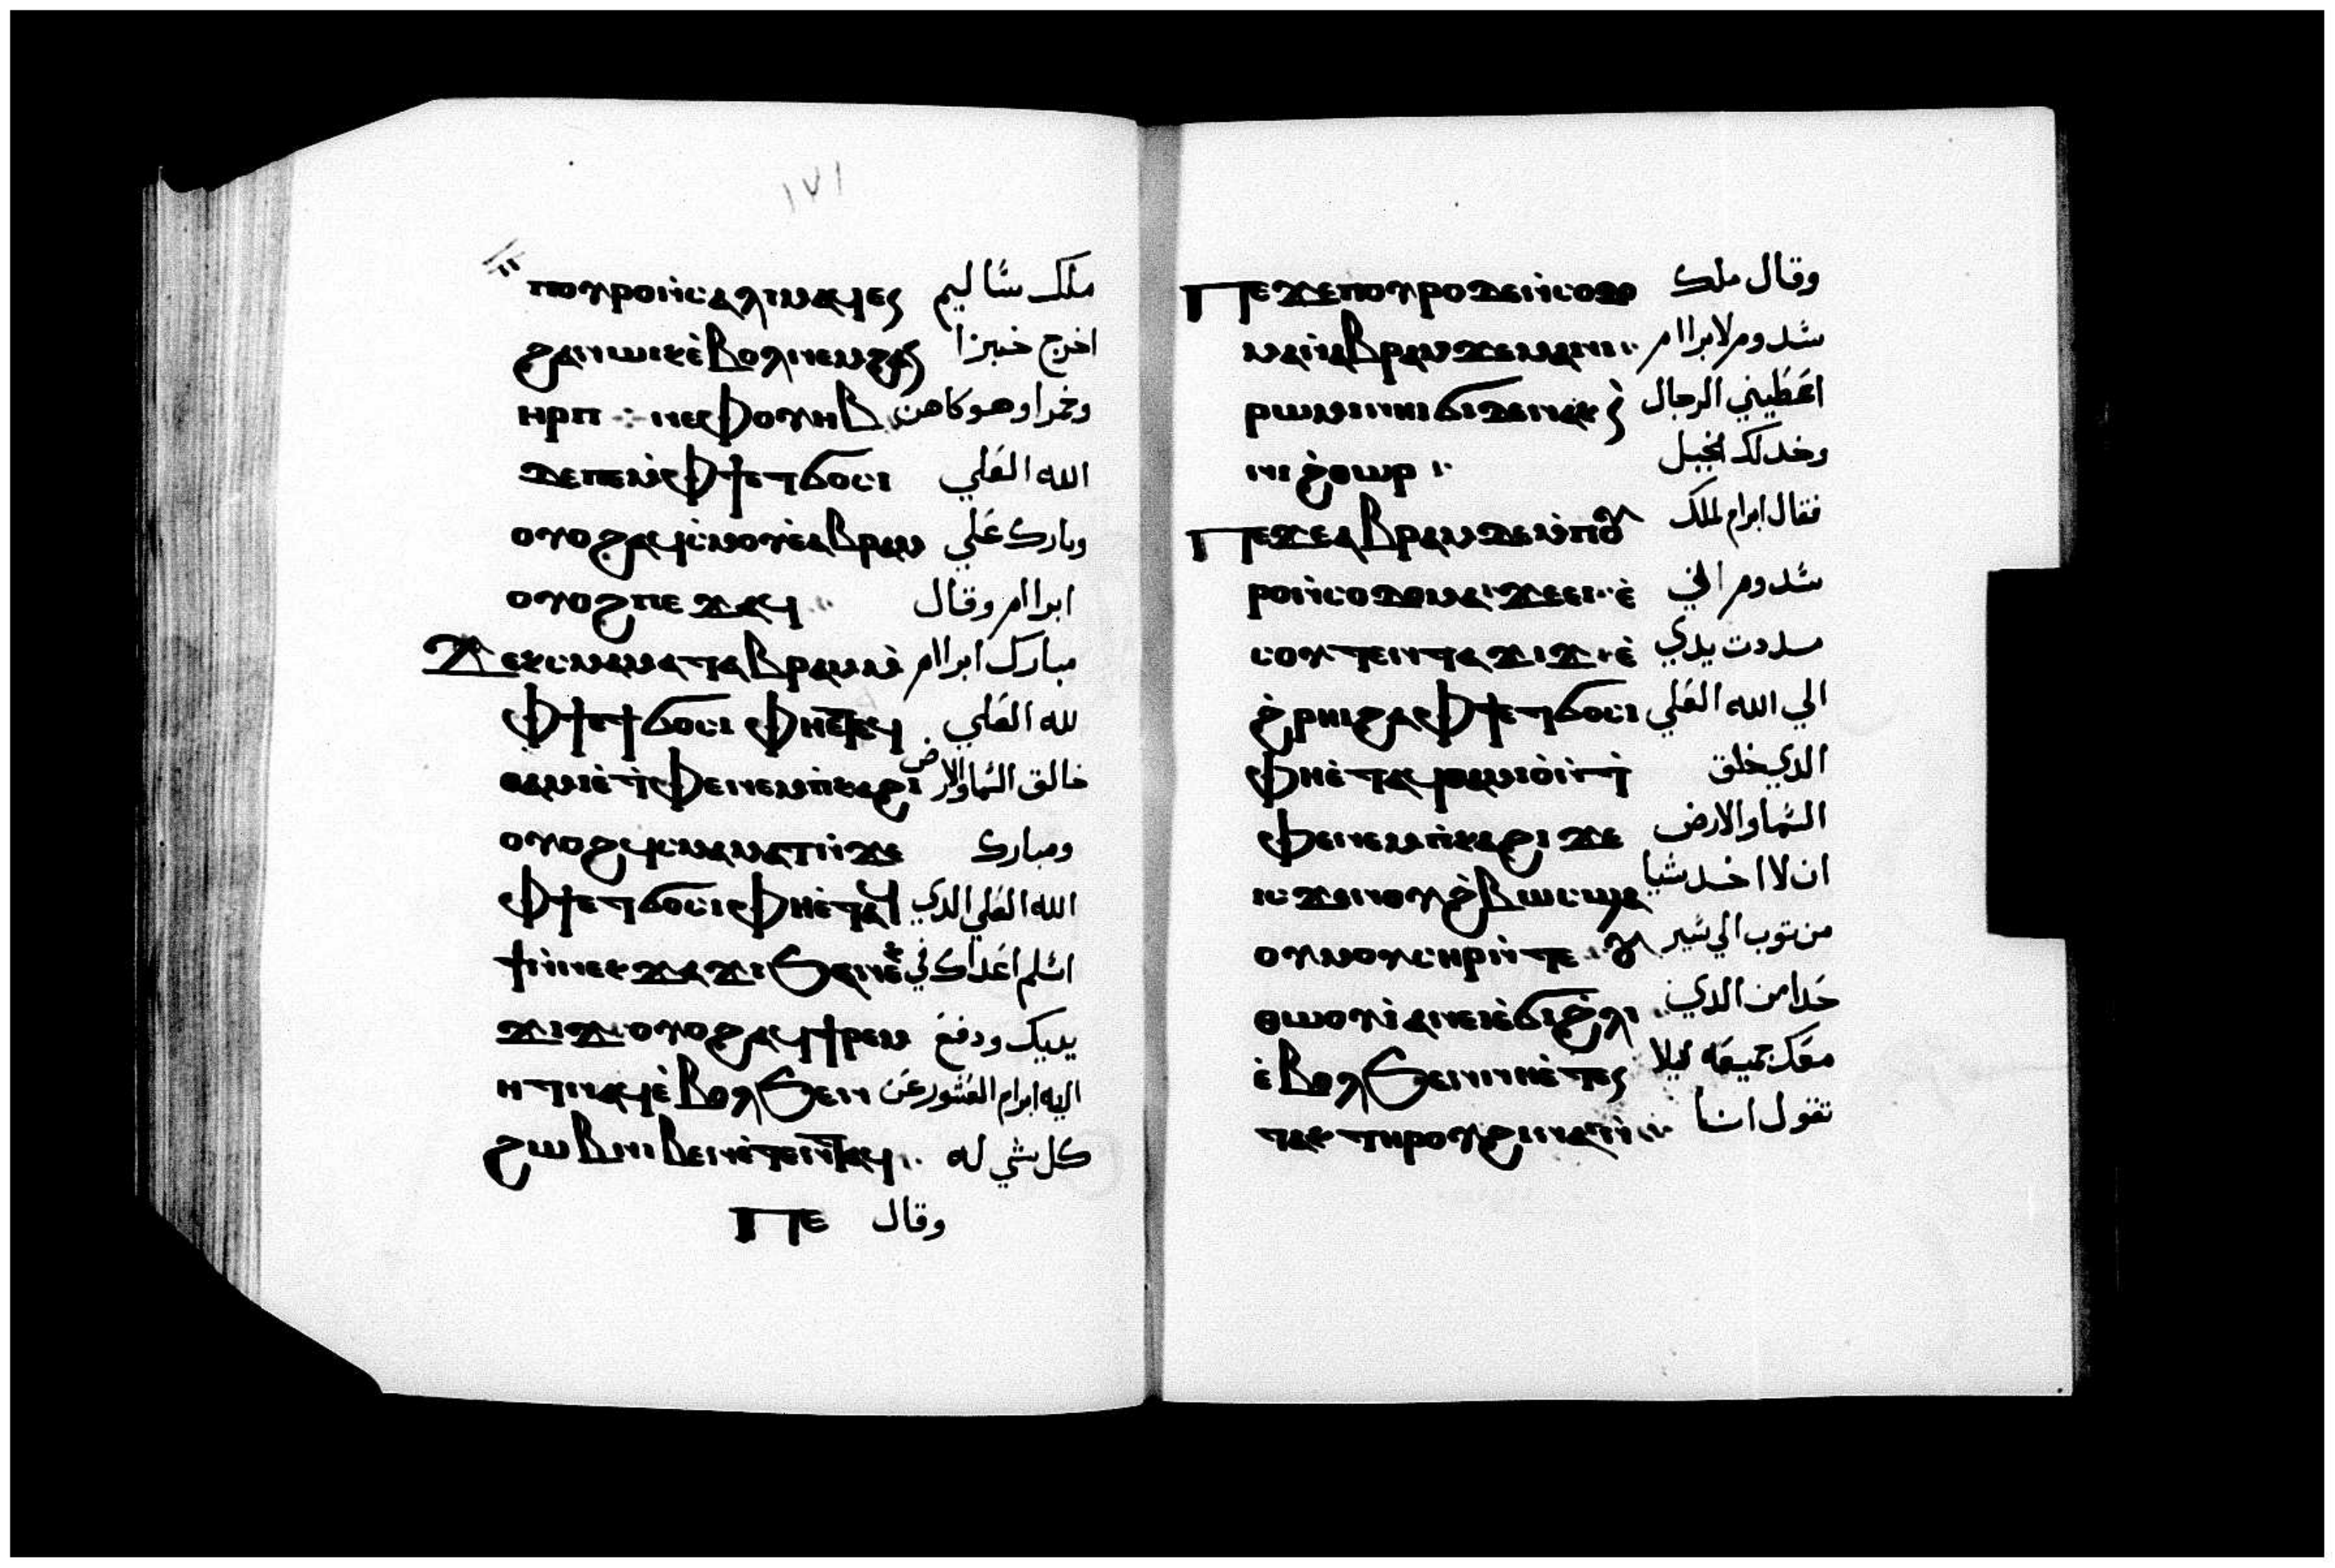 ١٧١
ⲡⲟⲩⲣⲟⲛ̀ⲥⲁⲗⲓⲙⲁϥⲉⲛ ملك شاليم
ϩⲁⲛⲱⲓⲕⲉ̀ⲃⲟⲗⲛⲉⲙϩⲁⲛ اخرج خبزا
ⲏⲣⲡ ⲛⲉⲫⲟⲩⲏⲃ وخمرا وهو كاهن
ⲇⲉⲡⲉⲙ̀ⲫϯⲉⲧϭⲟⲥⲓ الله العلي
ⲟⲩⲟϩⲁϥⲥ̀ⲙⲟⲩⲉ̀ⲁⲃⲣⲁⲙ وبارك علي
ⲟⲩⲟϩⲡⲉϫⲁϥ ابراام وقال
ϫⲉⲕⲥⲙⲁⲙⲁⲧⲁⲃⲣⲁⲙⲙ̀ مبارك ابراام
ⲫϯⲉⲧϭⲟⲥⲓ ⲫⲏⲉⲧⲁϥ لله العلي
ⲑⲁⲙⲓⲉ̀ⲧ̀ⲫⲉⲛⲉⲙⲡ̀ⲕⲁϩⲓ خالق السما والارض
ⲟⲩⲟϩϥⲥⲙⲁⲙⲁⲧⲛ̀ϫⲉ ومبارك
ⲫϯⲉⲧϭⲟⲥⲓⲫⲏⲉ̀ⲧⲁϥ الله العلي الدي
ϯⲛ̀ⲛⲉⲕϫⲁϫⲓϧⲉⲛⲛⲉⲕ اسلم اعداك في
ϫⲓϫⲟⲩⲟϩⲁϥϯⲣⲉⲙ يديك ودفع
ⲏⲧⲛⲁϥⲉ̀ⲃⲟⲗϧⲉⲛ اليه ابرام العشور عن
ϩⲱⲃⲛⲓⲃⲉⲛⲉ̀ⲧⲉⲛⲧⲁϥ كل شي له
ⲡⲉ وقال
ⲡⲉϫⲉⲡⲟⲩⲣⲟⲇⲉⲛ̀ⲥⲟⲇⲟ وقال ملك
ⲙⲁⲛ̀ⲁⲃⲣⲁⲙϫⲉⲙⲁⲛⲓ شدوم لابراام
ⲣⲱⲙⲓⲛⲏⲓϭⲓⲇⲉⲛⲁⲕⲛ̀ اعطيني الرجال
ⲛⲓϩ̀ⲑⲱⲣ وخد لك الخيل
ⲡⲉϫⲉⲁⲃⲣⲁⲙⲇⲉⲙ̀ⲡⲟⲩ فقال ابرام لملك
ⲣⲟⲛ̀ⲥⲟⲇⲟⲙⲁ ϫⲉⲉⲓⲉ̀ شدوم اني
ⲥⲟⲩⲧⲉⲛⲧⲁϫⲓϫⲉ̀ مددت يدي
ϩ̀ⲣⲏⲓϩⲁⲫϯⲉⲧϭⲟⲥⲓ الي الله العلي
ⲫⲏⲉ̀ⲧⲁϥⲑⲁⲙⲓⲟ̀ⲛ̀ⲧ̀ الدي خلق
ⲫⲉⲛⲉⲙⲡ̀ⲕⲁϩⲓ ϫⲉ السما والارض
ⲓⲥϫⲉⲛⲟⲩϩ̀ⲃⲱⲥϣⲁ ان لا اخد شيا
ⲟⲩⲙⲟⲩⲥⲏⲣⲛ̀ⲧⲉ ⲟⲩ من توب الي سير
ⲑⲱⲟⲩⲓ̀ⲁⲛⲉⲓⲉ̀ϭⲓϩ̀ⲗⲓ حدا من الدي
ⲉ̀ⲃⲟⲗϧⲉⲛⲛⲏⲉ̀ⲧⲉⲛ معك جميعه ليلا
ⲧⲁⲕ ⲧⲏⲣⲟⲩϩⲓⲛⲁⲛ̀ تقول انا